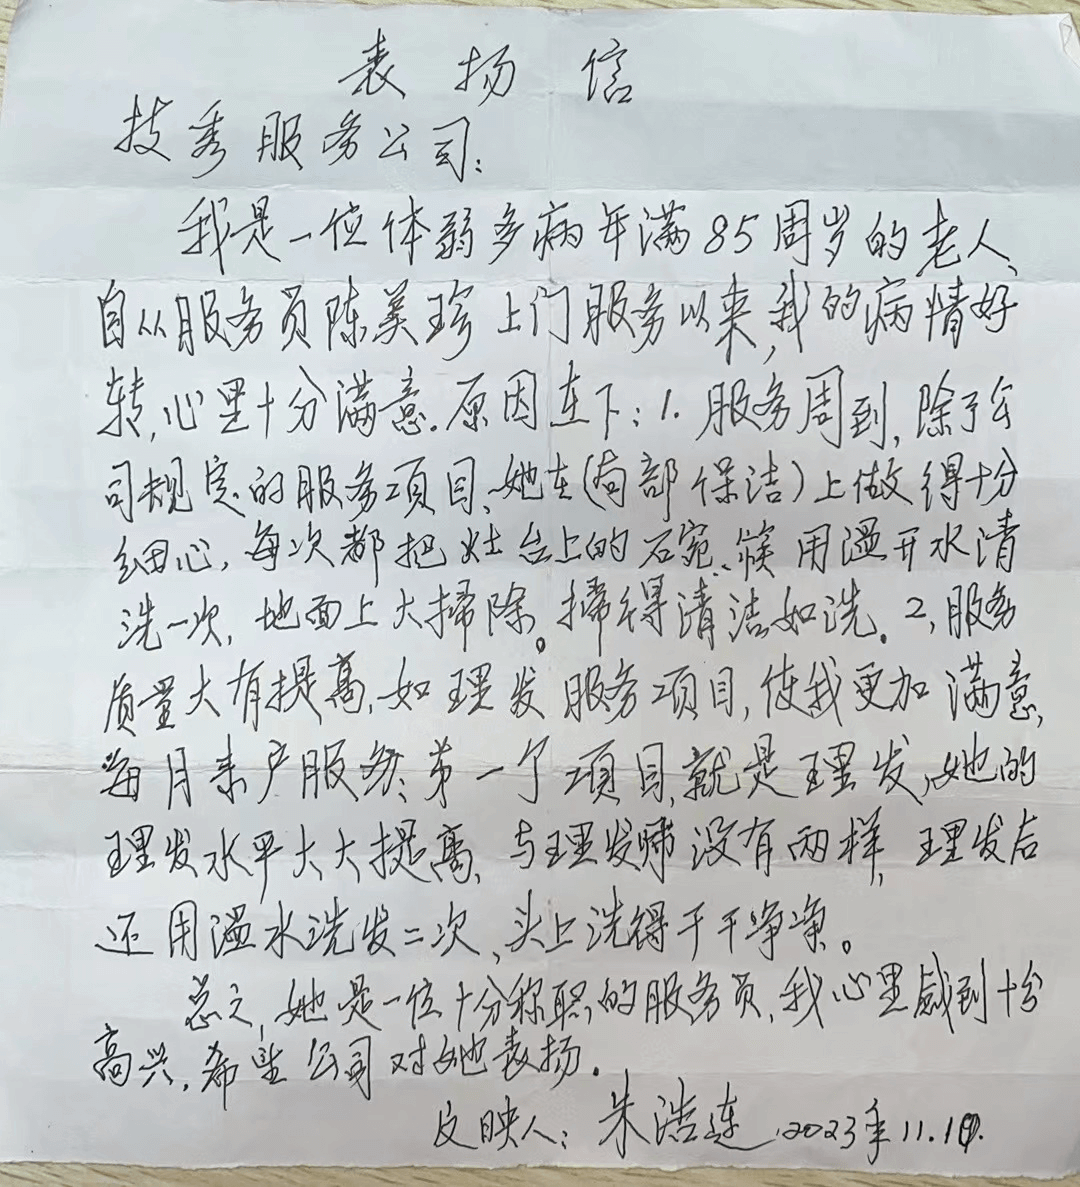 表扬信
技秀服务公司:
我是一位体弱多病年满85周岁的老人,
自从服务员陈美珍上门服务以来,我的病情好
转,心里十分满意.原因在下:1.服务周到,除了公
司规定的服务项目、她在(局部保洁)上做得十分
细心,每次都把灶台上的石宛、筷用温开水清
洗一次,地面上大掃除。掃得清洁如洗.2,服务
质量大有提高,如理发服务项目,使我更加满意,
每月来户服务、第一个项目,就是理发,她的
理发水平大大提高,与理发师没有两样,理发后
还用温水洗发二次,头上洗得干干净净。
总之,她是一位十分称职的服务员,我心里感到十分
高兴,希望公司对她表扬.
反映人:朱浩连 2023年11.